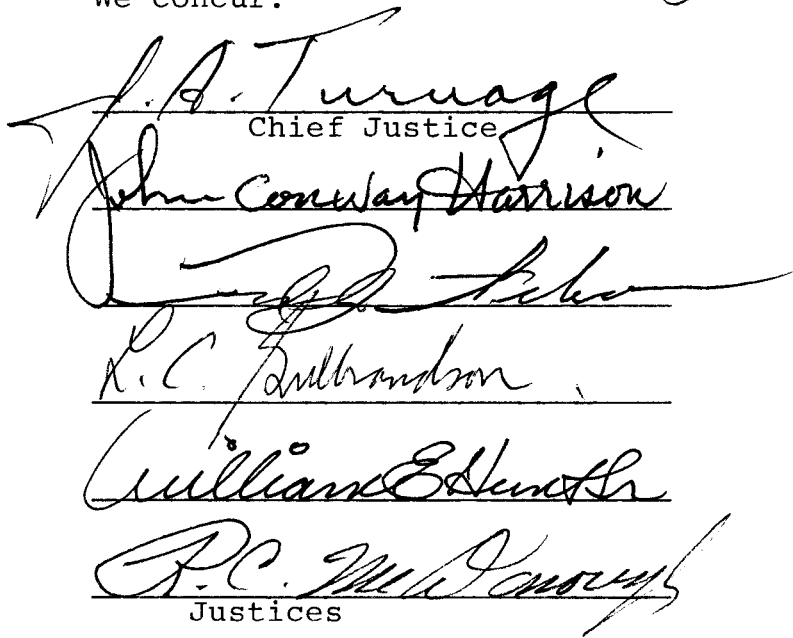 We concur:
J. A. Turnage
Chief Justice
John Conway Harrison
L. C. Gulbrandson
William E Hunt Sr
R. C. McDonough
Justices